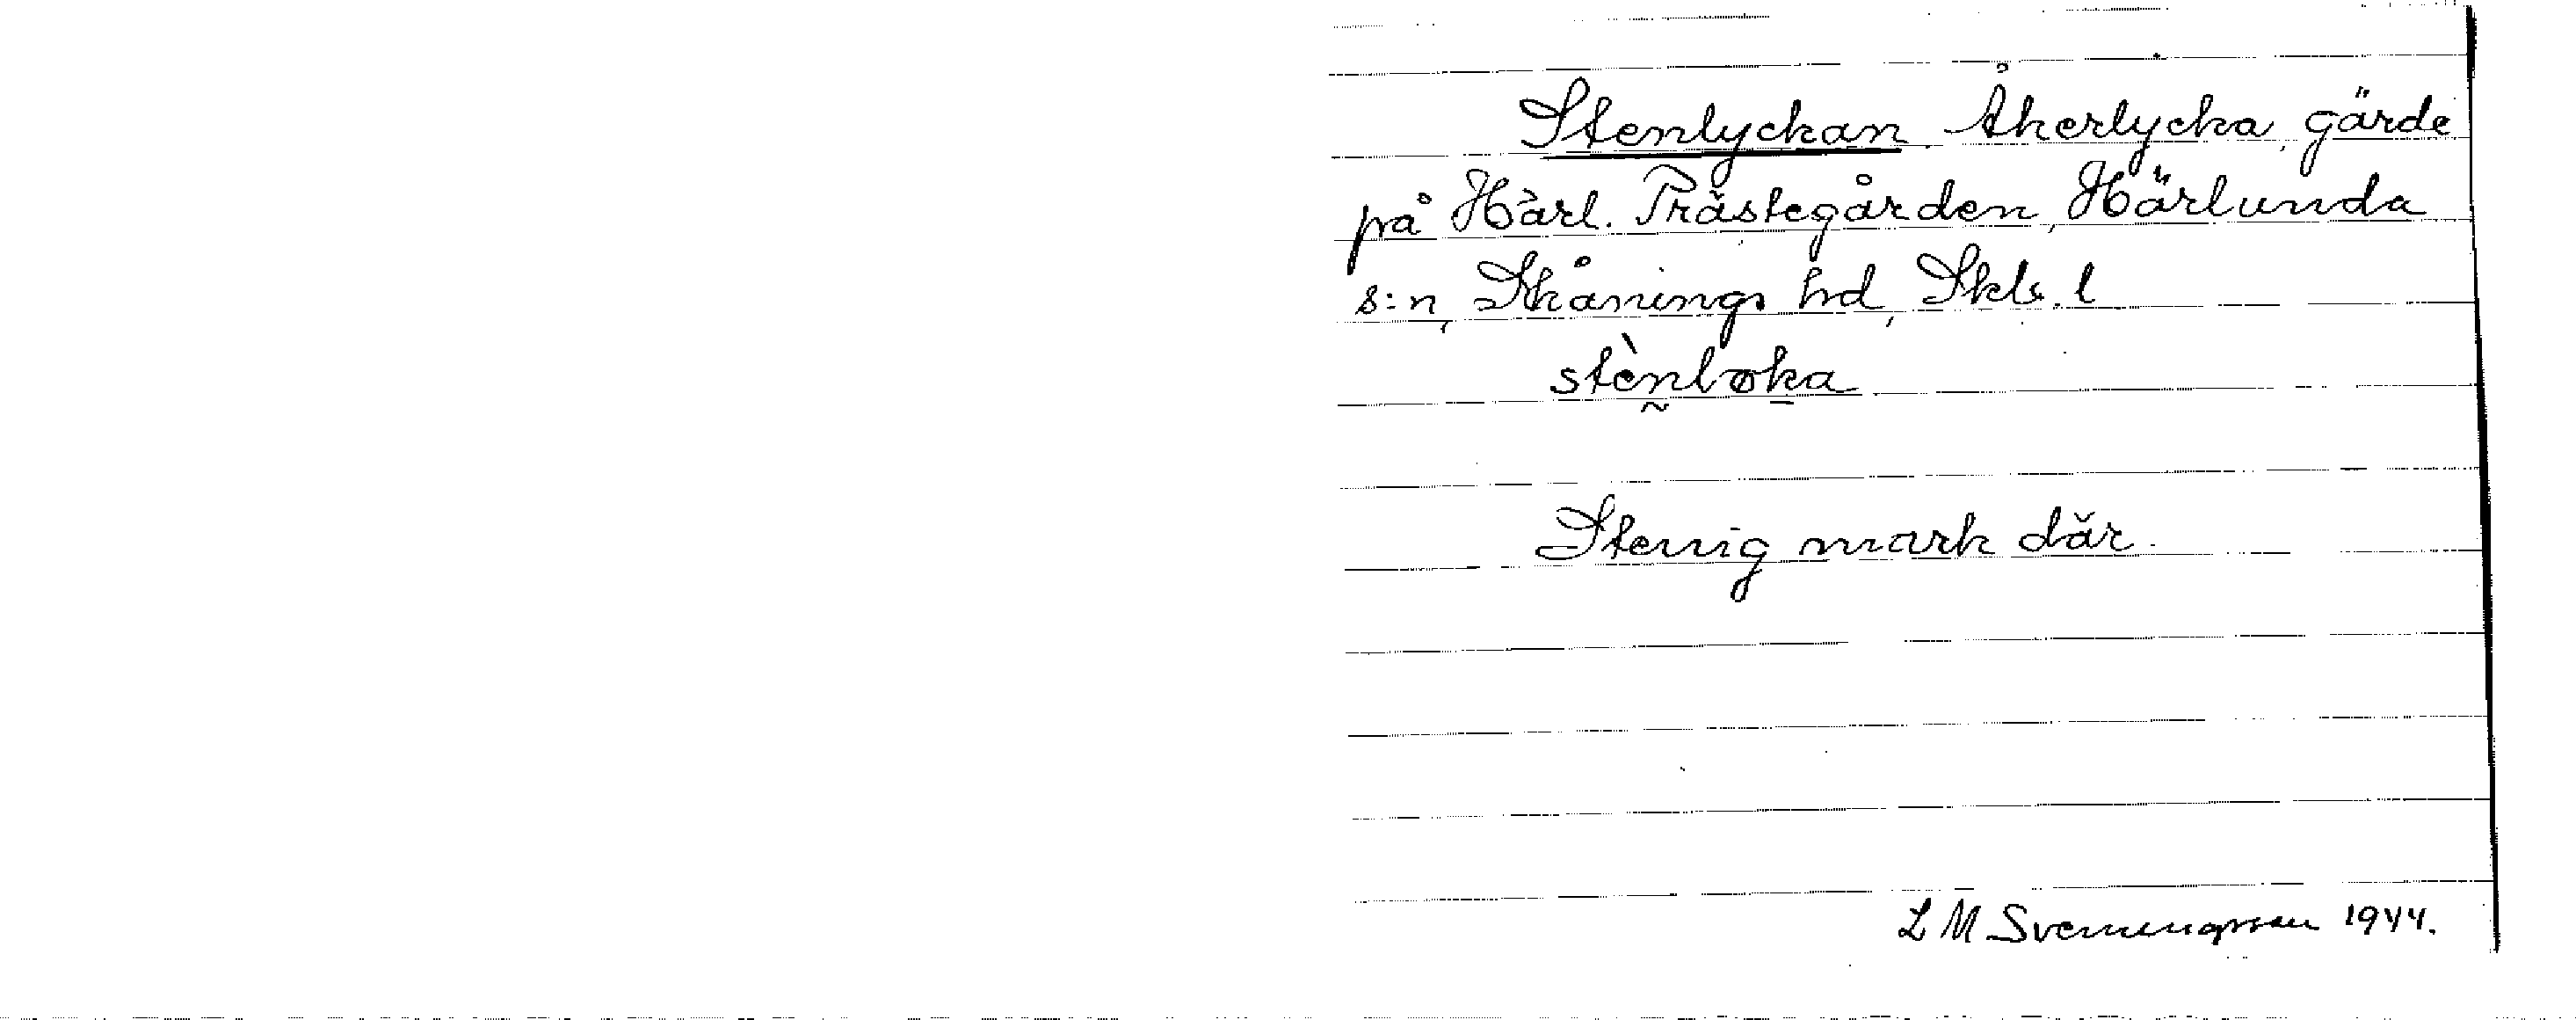 Stenlyckan Åkerlycka, gärde
på Härl. Prästegården, Härlunda
s:n, Skånings hd, Skbs. l
stènløka
Stenig mark där.
L M Svenungsson 1944.